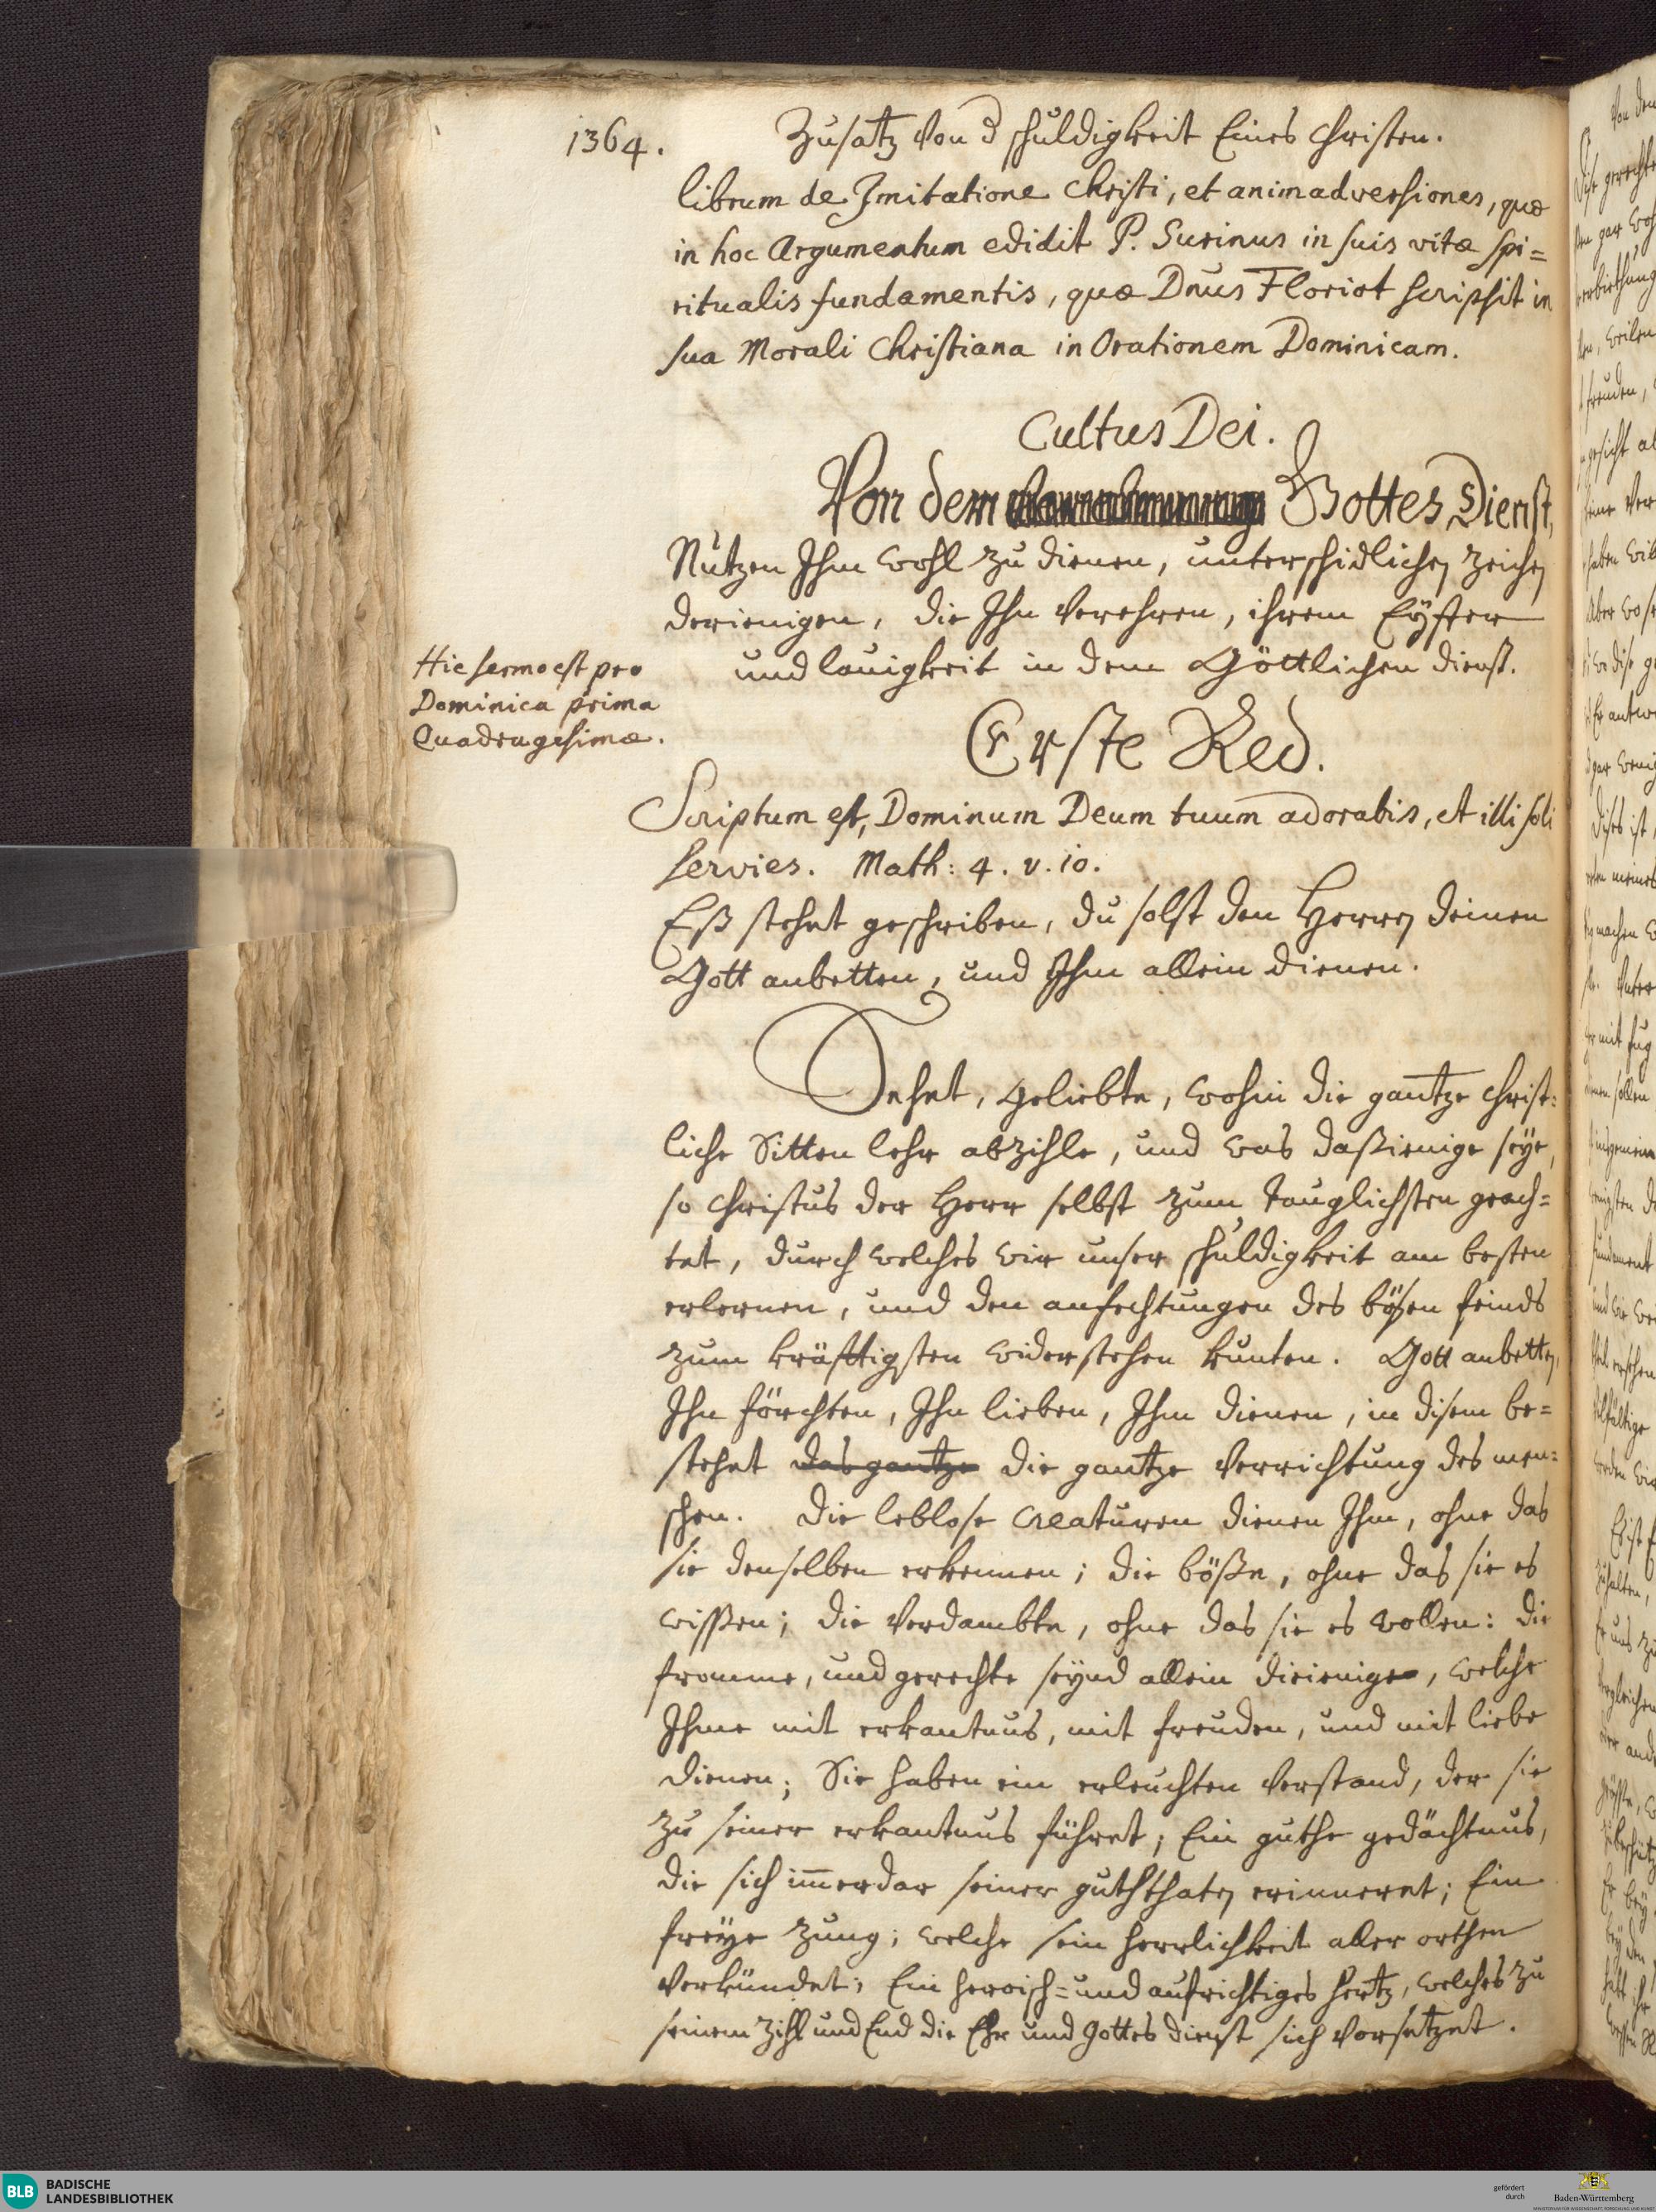 1364.
Zusatz von d schuldigkeit Eines Christen.
librum de Imitatione Christi, et animadversiones, quæ
in hoc Argumentum edidit P. Surinus in suis vitæ spi=
ritualis fundamentis, quæ Dnus Floriot scripsit in
sua Morali Christiana in Orationem Dominicam.
Cultus Dei.
Von dem Gottes Dienst,
Nutzen Ihm wohl zu dienen, unterschidlichen zeichen
derienigen, die Ihn verehren, ihrem Eyffer
und lauigkeit in dem Göttlichen dienst.
Hic sermo est pro
Dominica prima
Quadragesimæ.
Erste Red.
Scriptum est, Dominum Deum tuum adorabis, et illi soli
servies. Math: 4. v. 10.
Eß stehet geschriben, du solst den Herren deinen
Gott anbetten, und Ihm allein dienen.
Sehet, geliebte, wohin die gantze christ=
liche Sitten lehr abzihle, und was daßienige seye,
so Christus der Herr selbst zum tauglichsten geach=
tet, durch welches wir unser schuldigkeit am besten
erlernen, und den anfechtungen des bösen feinds
zum kräfftigsten widerstehen kunten. Gott anbetten,
Ihn förchten, Ihn lieben, Ihm dienen, in disem be=
stehet das gantze die gantze verrichtung des men=
schen. Die leblose Creaturen dienen Ihm, ohne das
sie denselben erkennen; die böße, ohne das sie es
wissen; die verdambte, ohne das sie es wollen: die
fromme, und gerechte seynd allein dieienige, welche
Ihme mit erkantnus, mit freuden, und mit liebe
dienen; Sie haben ein erleuchten verstand, der sie
zu seiner erkantnus führet; Ein guthe gedächtnus,
die sich imerdar seiner gutthaten erinneret; Ein
freye zung; welche sein herrlichkeit aller orthen
verkündet; Ein heroisch= und aufrichtiges hertz, welches zu
seinem zihl und End die Ehr und gottes dienst sich vorsetzet.
BLB BADISCHE
LANDESBIBLIOTHEK
gefördert
durch
Baden-Württemberg